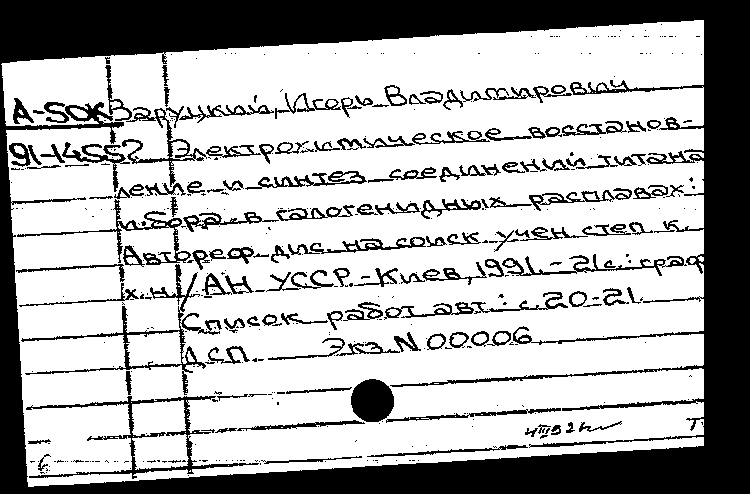 А-50К Заруцкий, Игорь Владимирович
91-14552 Электрохимическое восстанов-
ление и синтез соединений титана
и бора в галогенидных расплавах:
Автореф. дис. на соиск. учен. степ к.
х.н. / АН УССР.-Киев, 1991.-21с.: граф
Список работ авт.: с.20-21.
ДСП. Экз. N 00006.
Т
6